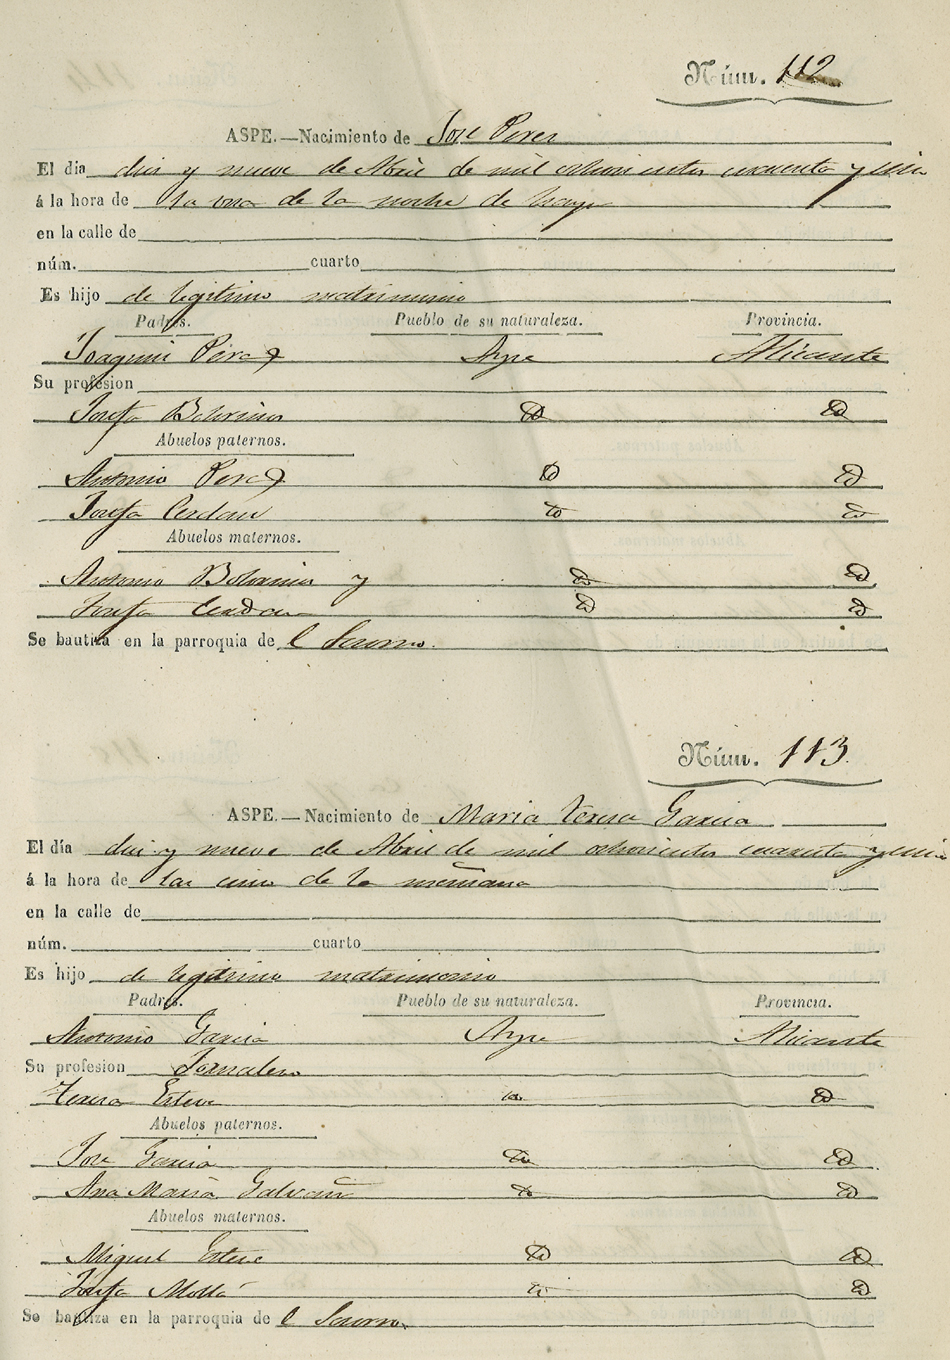 Núm. 112
ASPE.—Nacimiento de Jose Perez
El dia diez y nueve de Abril de mil ochocientos cuarenta y uno
á la hora de la una de la noche de
en la calle de
núm. cuarto
Es hijo de legitimo matrimonio
Padres. Pueblo de su naturaleza. Provincia.
Joaquin Perez Aspe Alicante
Su profesion
Josefa Id Id
Abuelos paternos.
Antonio Perez Id Id
Josefa Cerdan Id Id
Abuelos maternos.
Antonio y Id Id
Josefa Cerdan Id Id
Se bautiza en la parroquia de l Socorro.
Núm. 113.
ASPE.—Nacimiento de Maria Teresa Garcia
El día diez y nueve de Abril de mil ochocientos cuarenta y uno
á la hora de las cinco de la mañana
en la calle de
núm. cuarto
Es hijo de legitimo matrimonio
Padres. Pueblo de su naturaleza. Provincia.
Antonio Garcia Aspe Alicante
Su profesion Jornalero
Teresa Esteve Id Id
Abuelos paternos.
Jose Garcia Id Id
Ana Maria Galvañ Id Id
Abuelos maternos.
Miguel Esteve Id Id
Josefa Mollá Id Id
Se bautiza en la parroquia de l Socorro.